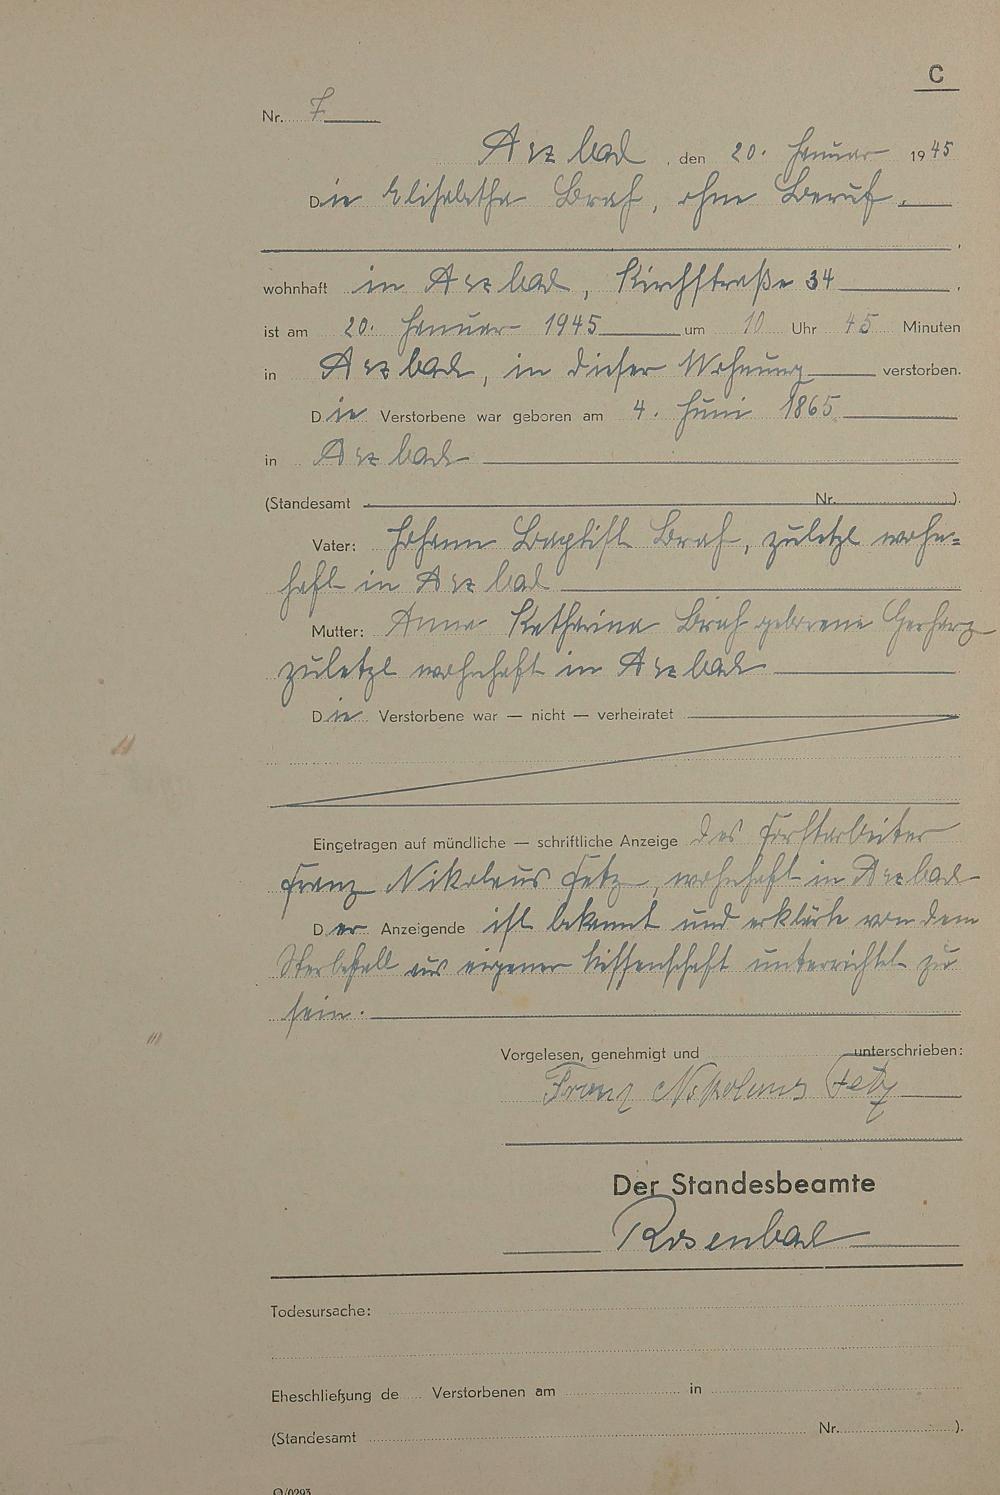 C
Nr. 7
Arzbach, den 20. Januar 1945
Die Elisabetha Graf, ohne Beruf.
wohnhaft in Arzbach, Kirchstraße 34
ist am 20. Januar 1945 um 10 Uhr 45 Minuten
in Arzbach, in dieser Wohnung verstorben.
Die Verstorbene war geboren am 4. Juni 1865
in Arzbach
(Standesamt Nr. ).
Vater: Johann Baptist Graf, zuletzt wohn-
haft in Arzbach
Mutter: Anna Katharina Graf geborene Gerharz
zuletzt wohnhaft in Arzbach
Die Verstorbene war — nicht — verheiratet
Eingetragen auf mündliche — schriftliche Anzeige des Forstarbeiter
Franz Nikolaus Fetz, wohnhaft in Arzbach
Der Anzeigende ist bekannt und erklärte von dem
Sterbefall aus eigener Wissenschaft unterrichtet zu
sein.
Vorgelesen, genehmigt und unterschrieben:
Franz Nikolaus Fetz
Der Standesbeamte
Rosenbach
Todesursache:
Eheschließung de Verstorbenen am in
(Standesamt Nr. ).